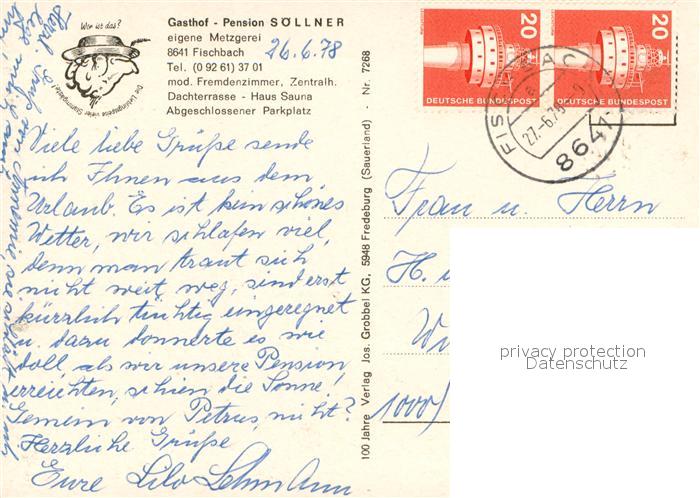 Wer ist das?
Die Lieblingsspeise vieler Stammgäste!
Gasthof - Pension SÖLLNER
eigene Metzgerei
8641 Fischbach
Tel. (0 92 61) 37 01
mod. Fremdenzimmer, Zentralh.
Dachterrasse - Haus Sauna
Abgeschlossener Parkplatz
26.6.78
Viele liebe Grüße sende
ich Ihnen aus dem
Urlaub. Es ist kein schönes
Wetter, wir schlafen viel,
denn man traut sich
nicht weit weg, sind erst
kürzlich tüchtig eingeregnet
u. dazu donnerte es wie
doll, als wir unsere Pension
erreichten, schien die Sonne
Gemein von Petrus, nicht?
Herzliche Grüße
Eure Lilo Lehmann
Herzl. Grüße von
100 Jahre Verlag Jos. Grobbel KG, 5948 Fredeburg (Sauerland) - Nr. 77268
20
DEUTSCHE BUNDESPOST
20
DEUTSCHE BUNDESPOST
27.-6.78
8641
Frau u. Herrn
H.
Wi
1000/
privacy protection
Datenschutz